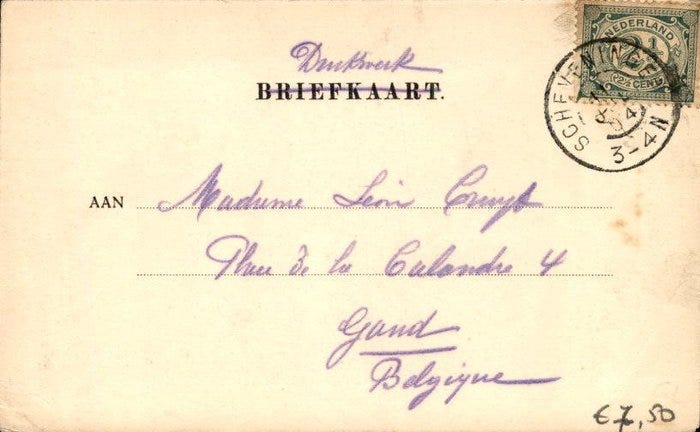 Drukwerk
BRIEFKAART.
NEDERLAND
2½ CENT
SCHEVENINGEN
3-4N
AAN Madame Léon Cruyt
Place de la Calandre 4
Gand
Belgique
€7,50